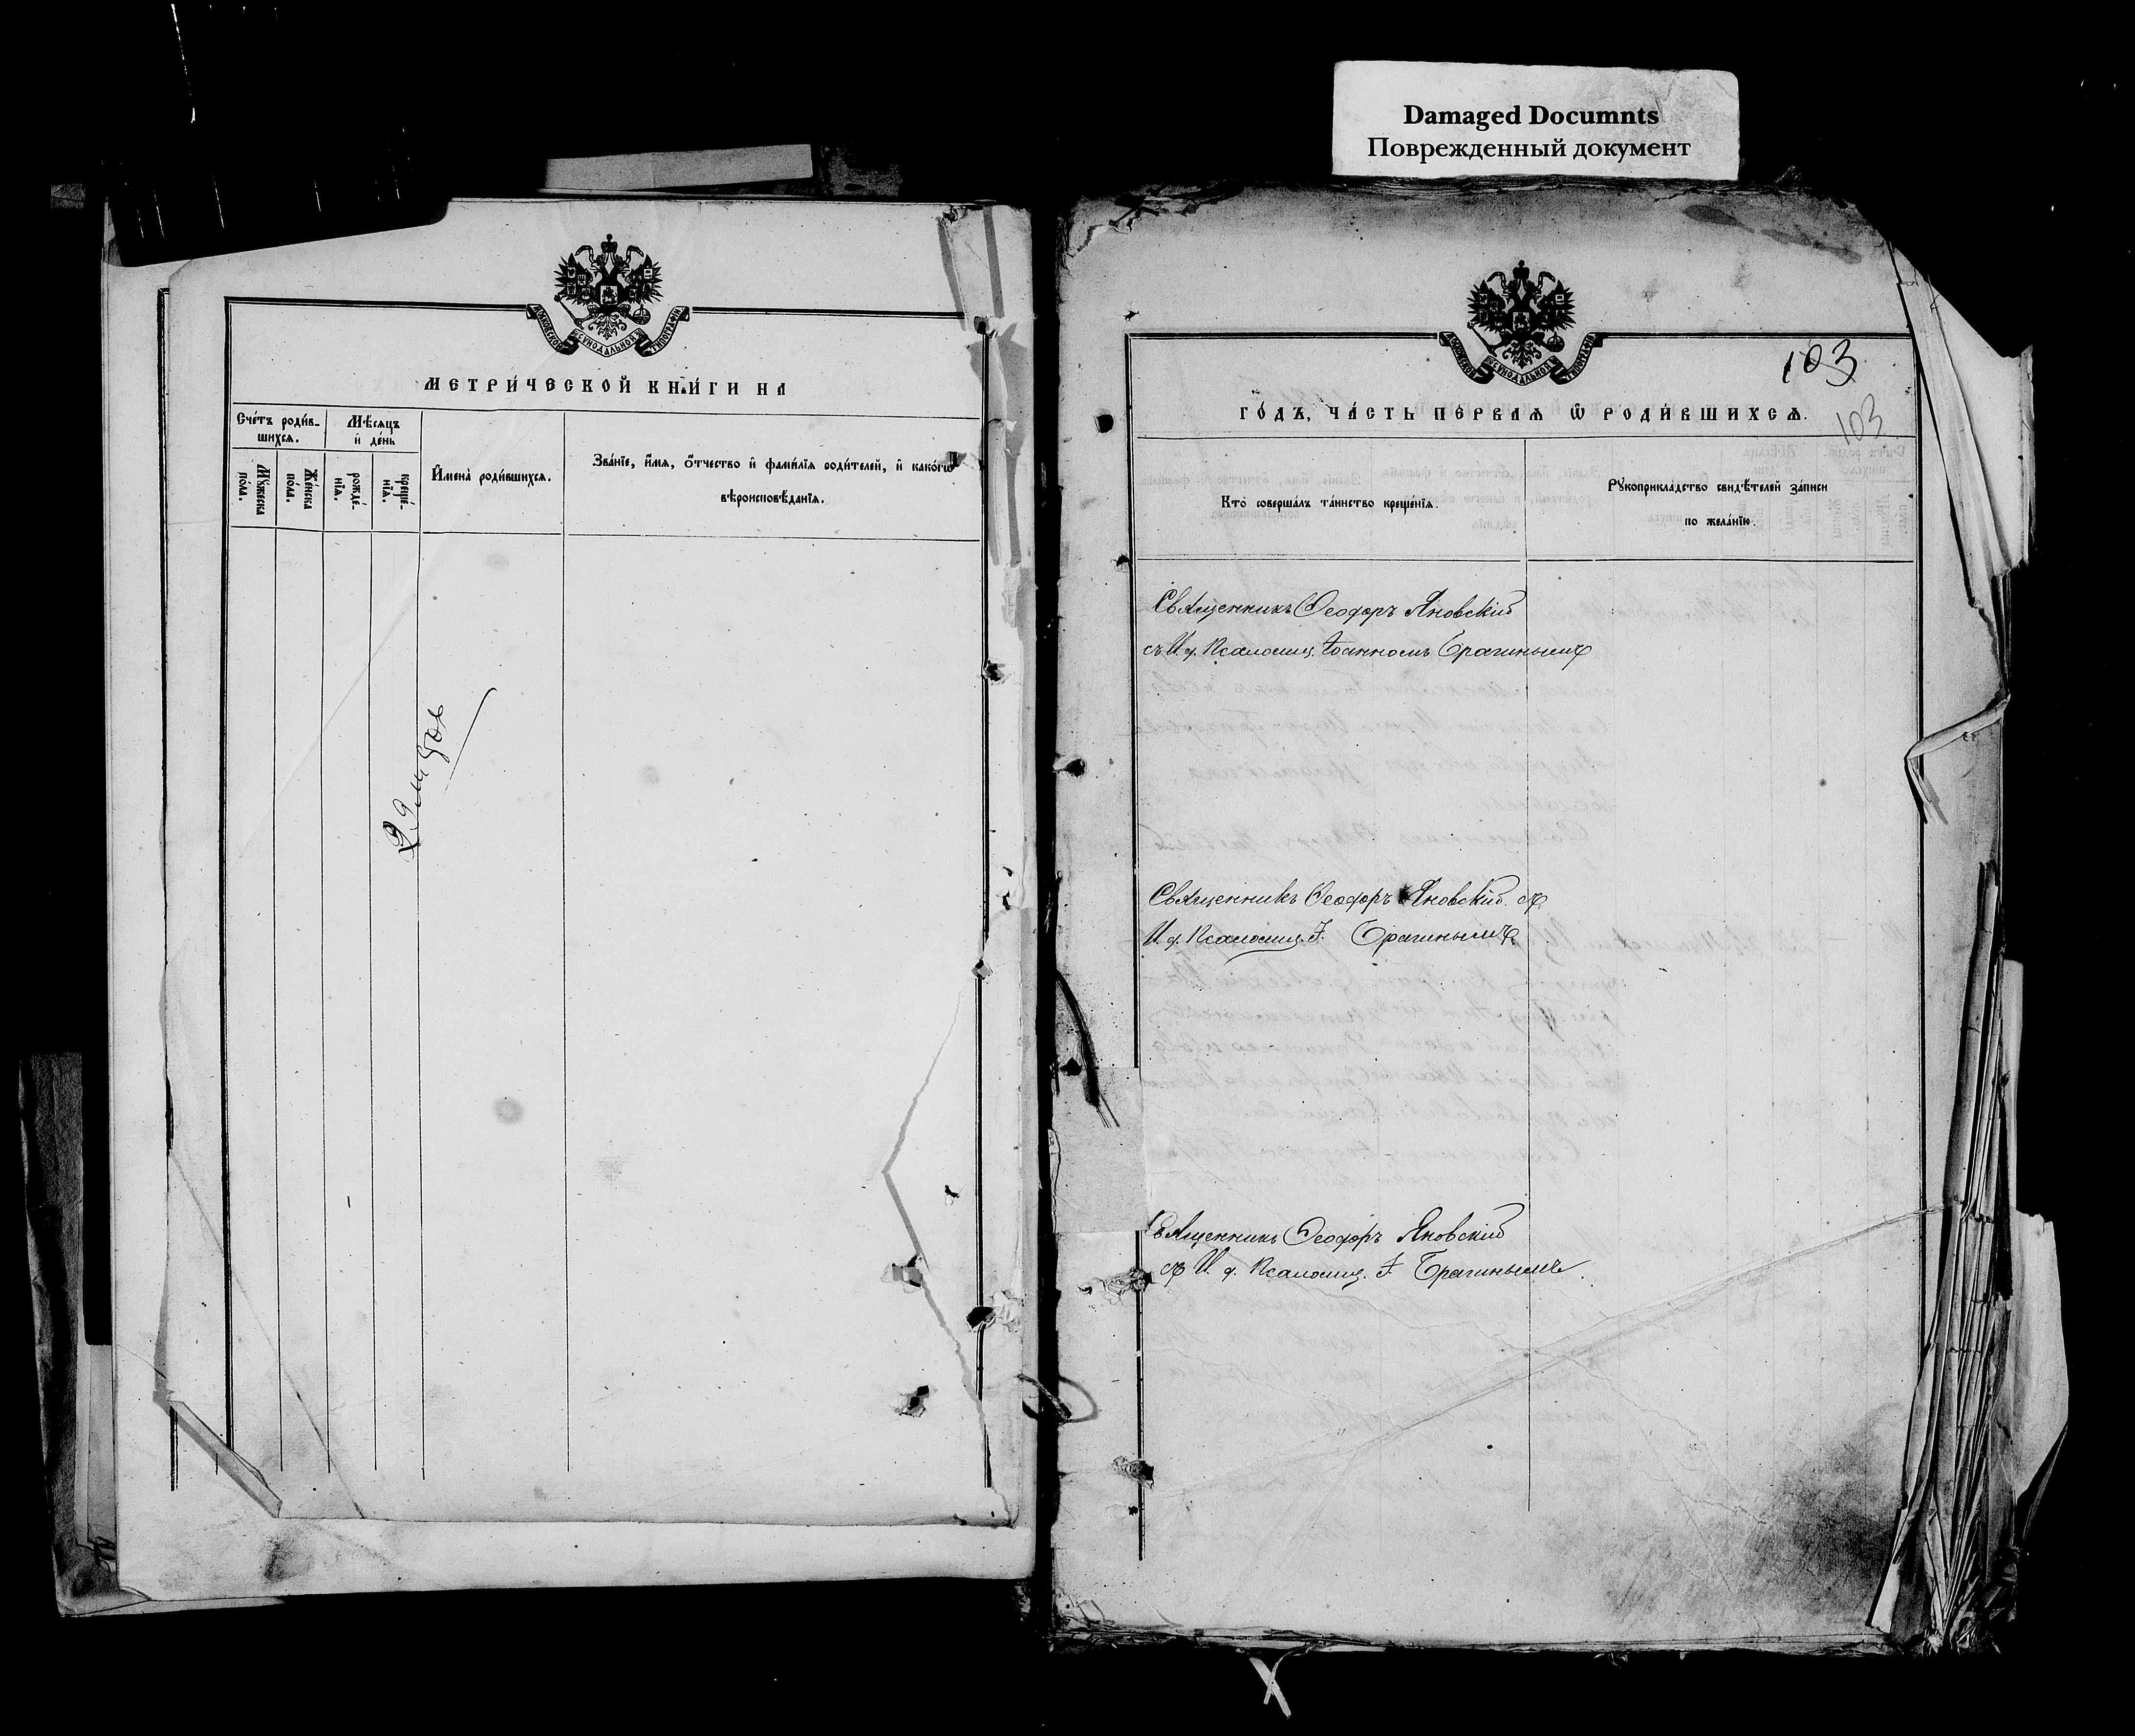 Damaged Documnts
Поврежденный документ
МОСКОВСКОЙ СѴНОДАЛЬНОЙ ТИПОГРАФІИ
МЕТРИ́ЧЕСКОЙ КНИ́ГИ НА
Сче́тъ роди́в-
шихсѧ.
Мѣ́сѧцъ
и҆ де́нь
Мꙋ́жеска
по́ла.
Же́нска
по́ла.
рожде́-
нїѧ.
креще́-
нїѧ.
И҆мена̀ роди́вшихсѧ.
Зва́нїе, и҆́мѧ, ѻ҆́тчество и҆ фами́лїѧ роди́телей, и҆ како́гѡ
вѣроисповѣ́данїѧ.
МОСКОВСКОЙ СѴНОДАЛЬНОЙ ТИПОГРАФІИ
103
103
ГО́ДЪ, ЧА́СТЬ ПЕ́РВАѦ Ѿ РОДИ́ВШИХСѦ.
Кто̀ соверша́лъ та́инство креще́нїѧ.
Рꙋкоприкла́дство свидѣ́телей за́писи
по жела́нїю.
Священникъ Ѳеодоръ Яновскій
съ И. д. Псаломщ. Іоанномъ Брагинымъ
Священникъ Ѳеодоръ Яновскій. съ
И. д. Псаломщ. І. Брагинымъ
Священникъ Ѳеодоръ Яновскій
съ И. д. Псаломщ. І. Брагинымъ.